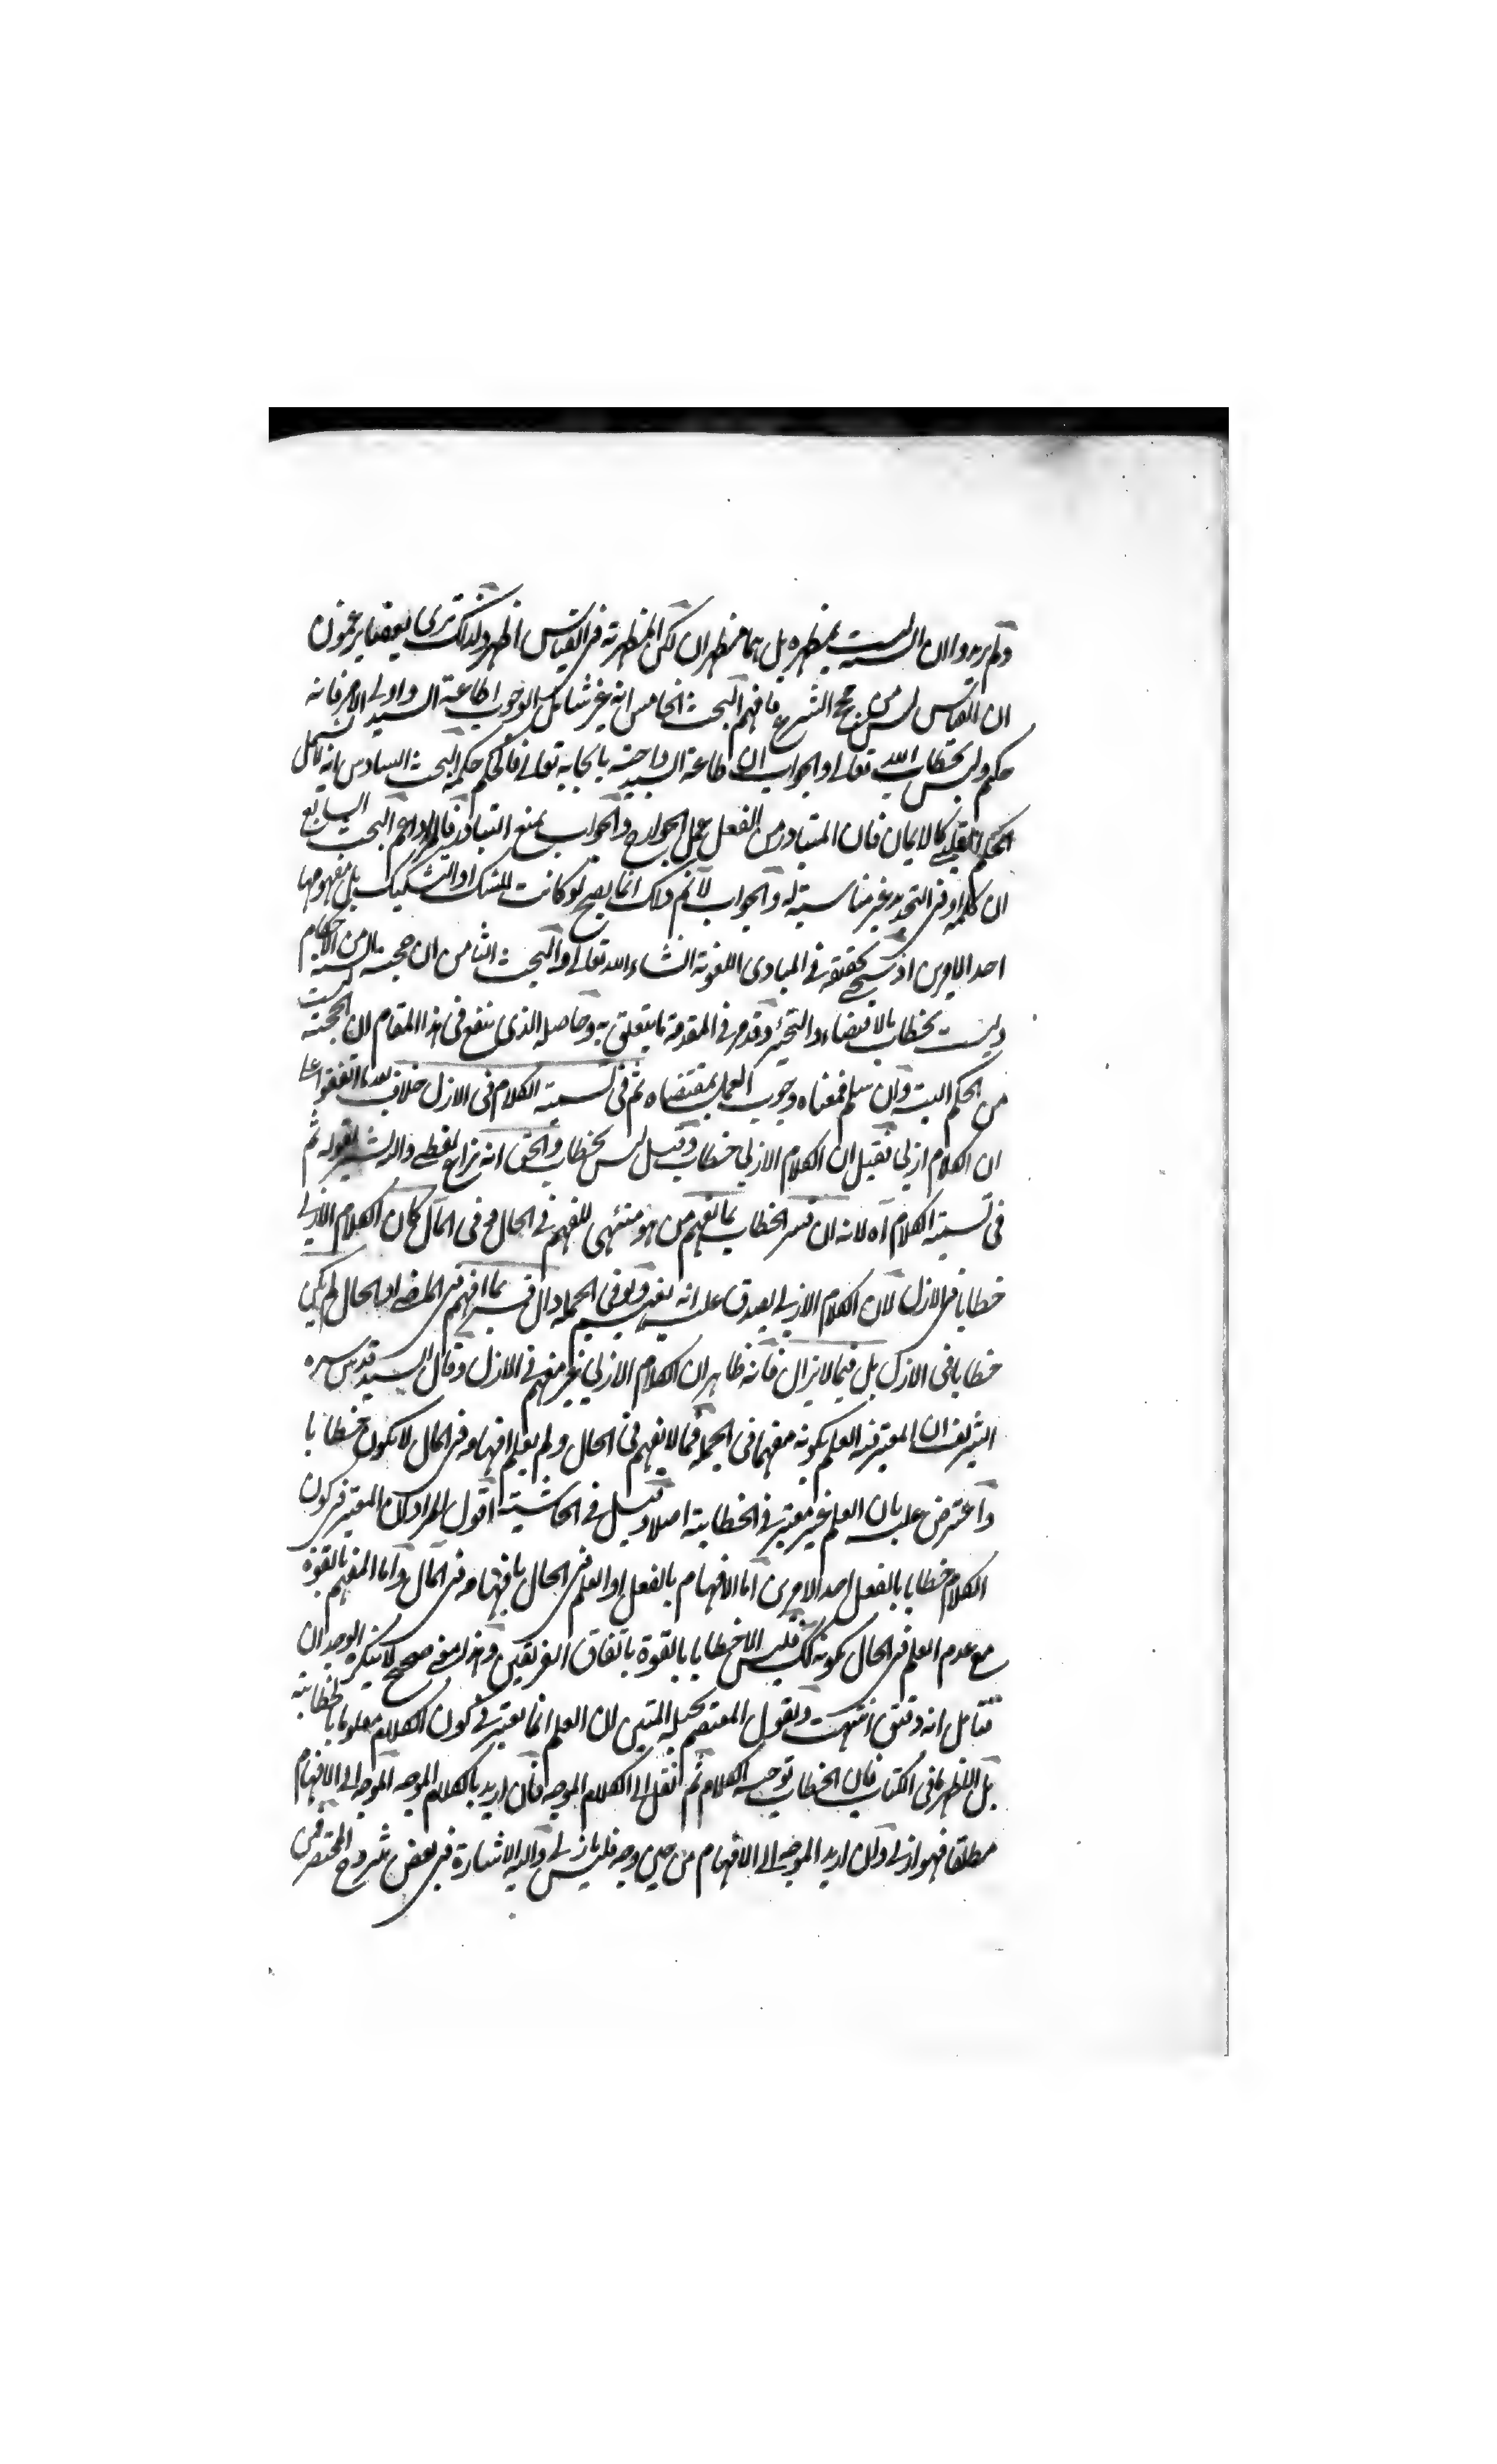 ولم يريدوا ان السنة ليست بمظهرة بل هما مظهران لكن المظهرية في القياس اظهر ولذلك ترى بعضنا يزعمون
ان القياس ليس من حجج الشرع فافهم البحث الخامس انه غير شامل لوجوب اطاعة السيد واولى الامر فانه
حكم وليس بخطاب الله تعالى والجواب ان طاعة السيد واجبة بايجابه تعالى فالحكم حكمه البحث السادس انه لا يشمل
الحكم القلبي كالايمان فان المتبادر من الفعل عمل الجوارح والجواب بمنع التبادر فالمراد اعم البحث السابع
ان كلمة او في التحديد غير مناسبة له والجواب لا نم ذلك انما يصح لو كانت للشك او التشكيك بل مفهومها
احد الامرين اذ سيجيء تحقيقه في المبادي اللغوية انشاء الله تعالى والبحث الثامن ان حجية السنة من الاحكام
وليست بخطاب بالاقتضاء والتخيير وقد مر في المقدمة ما يتعلق به وحاصله الذي ينفع في هذا المقام ان الحجية ليست
من الحكم البتة وان سلم فمعناه وجوب العمل بمقتضاه ثم في تسمية الكلام في الازل خلاف بعد ما اتفقوا على
ان الكلام ازلي فقيل ان الكلام الازلي خطاب وقيل ليس بخطاب والحق انه نزاع لفظي واليه اشير بقوله ثم
في تسمية الكلام آه لانه ان فسر الخطاب بما يفهم من هو متهيئ للفهم في الحال او في المآل كان الكلام الازلي
خطابا في الازل لان الكلام الازلي يصدق عليه انه يفهم ولو في الجملة وان فسر بما افهم في الماضي او الحال لم يكن
خطابا في الازل بل فيما لا يزال فانه ظاهر ان الكلام الازلي غير مفهم في الازل وقال السيد قدس سره
الشريف ان المعتبر فيه العلم بكونه مفهما في الجملة فما لا يفهم في الحال ولم يعلم افهامه في المآل لا يكون خطابا
واعترض عليه بان العلم غير معتبر في الخطابية اصلا وقيل في الحاشية اقول المراد ان المعتبر في كون
الكلام خطابا بالفعل احد الامرين اما الافهام بالفعل او العلم في الحال بافهامه في المآل واما المفهم بالقوة
مع عدم العلم في الحال بكونه كذلك فليس الا خطابا بالقوة باتفاق الفريقين وهذا معنى صحيح لا ينكره الوجدان
فتأمل انه دقيق انتهت ويقول المعتصم بحبله المتين ان العلم انما يعتبر في كون الكلام معلوما بالخطابية
بل النظر في الكتاب فان الخطاب توجيه الكلام ثم انتقل الى الكلام الموجه فان اريد بالكلام الموجه الموجه الى الافهام
مطلقا فهو ازلي وان اريد الموجه الى الافهام من حين وجه فليس بازلي واليه الاشارة في بعض شروح المختصر في